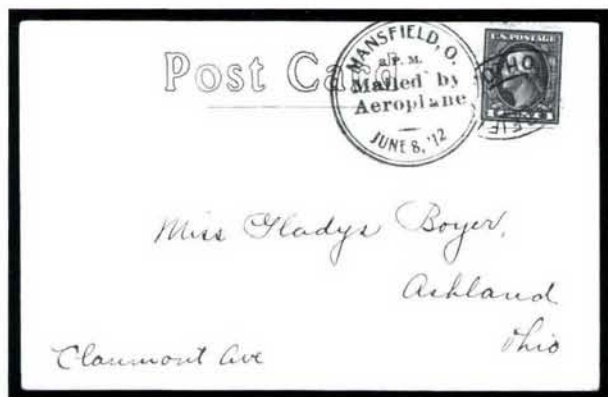 Post Card
MANSFIELD, O.
2 P.M.
Mailed by
Aeroplane
JUNE 8, '12
U.S. POSTAGE
OHIO
Miss Gladys Boyer,
Ashland
Ohio
Claremont Ave